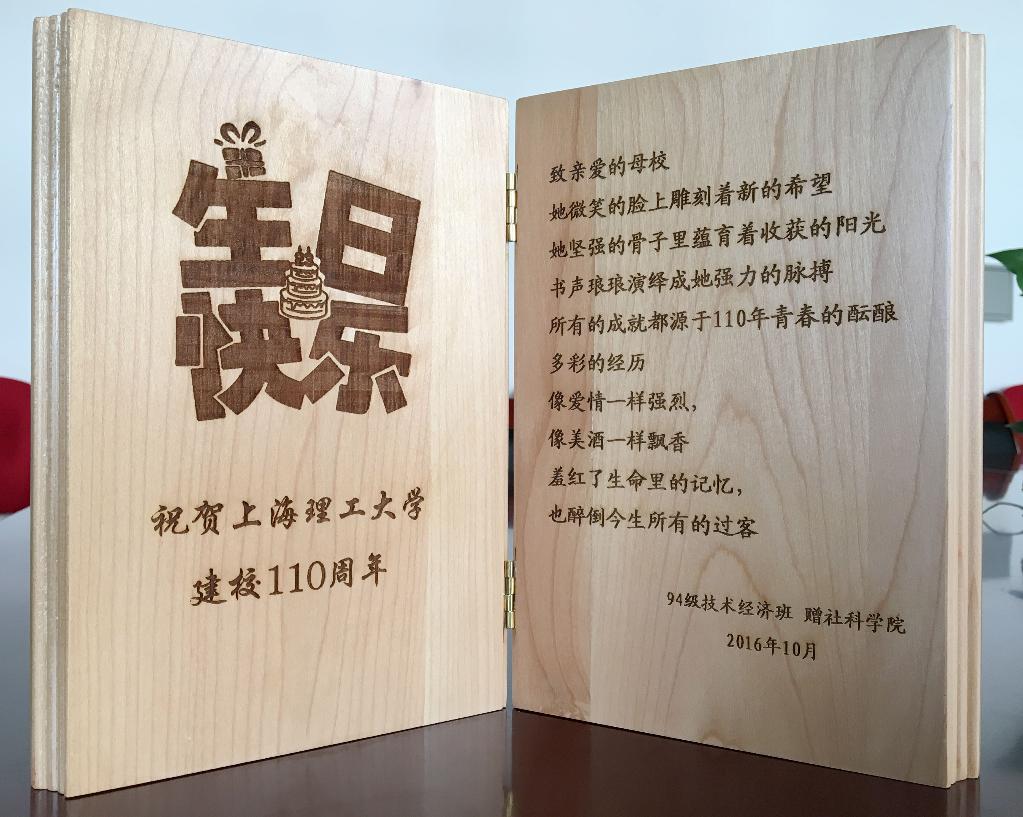 生日
快乐
祝贺上海理工大学
建校110周年
致亲爱的母校
她微笑的脸上雕刻着新的希望
她坚强的骨子里蕴育着收获的阳光
书声琅琅演绎成她强力的脉搏
所有的成就都源于110年青春的酝酿
多彩的经历
像爱情一样强烈，
像美酒一样飘香
羞红了生命里的记忆，
也醉倒今生所有的过客
94级技术经济班 赠社科学院
2016年10月